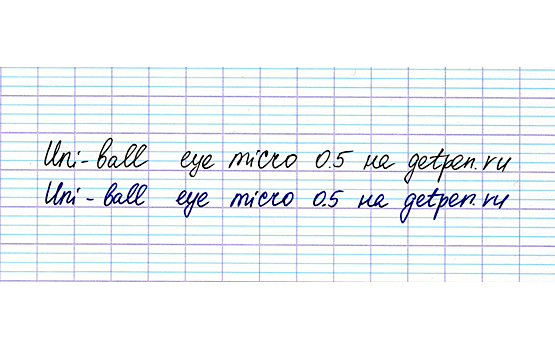 Uni-ball eye micro 0.5 на getpen.ru
Uni-ball eye micro 0.5 на getpen.ru